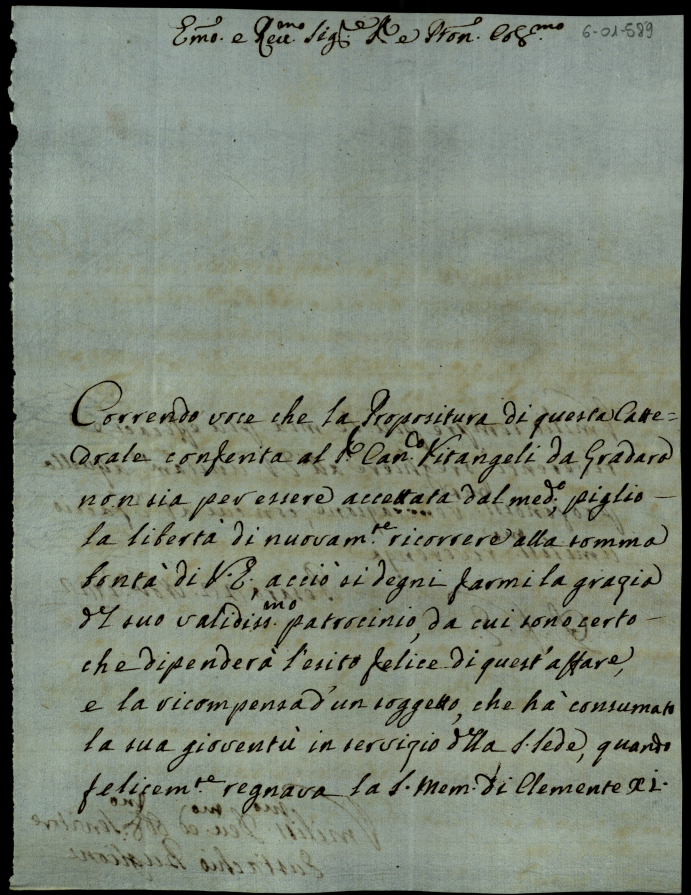 Emo. e Reu.mo Sig.re P.re e Pron. Col.mo
6-01-589
Correndo voce che la Propositura di questa Catte=
drale conferita al S.r Can.co Vitangeli da Gradara
non sia per essere accettata dal med.o, piglio
la libertà di nuovam.te ricorrere alla somma
bontà di V.E. acciò si degni farmi la grazia
del suo validiss.mo patrocinio, da cui sono certo
che dipenderà l'esito felice di quest'affare,
e la ricompensa d'un soggetto, che hà consumato
la sua gioventù in servizio della S. Sede, quando
felicem.te regnava la S. Mem. di Clemente XI.